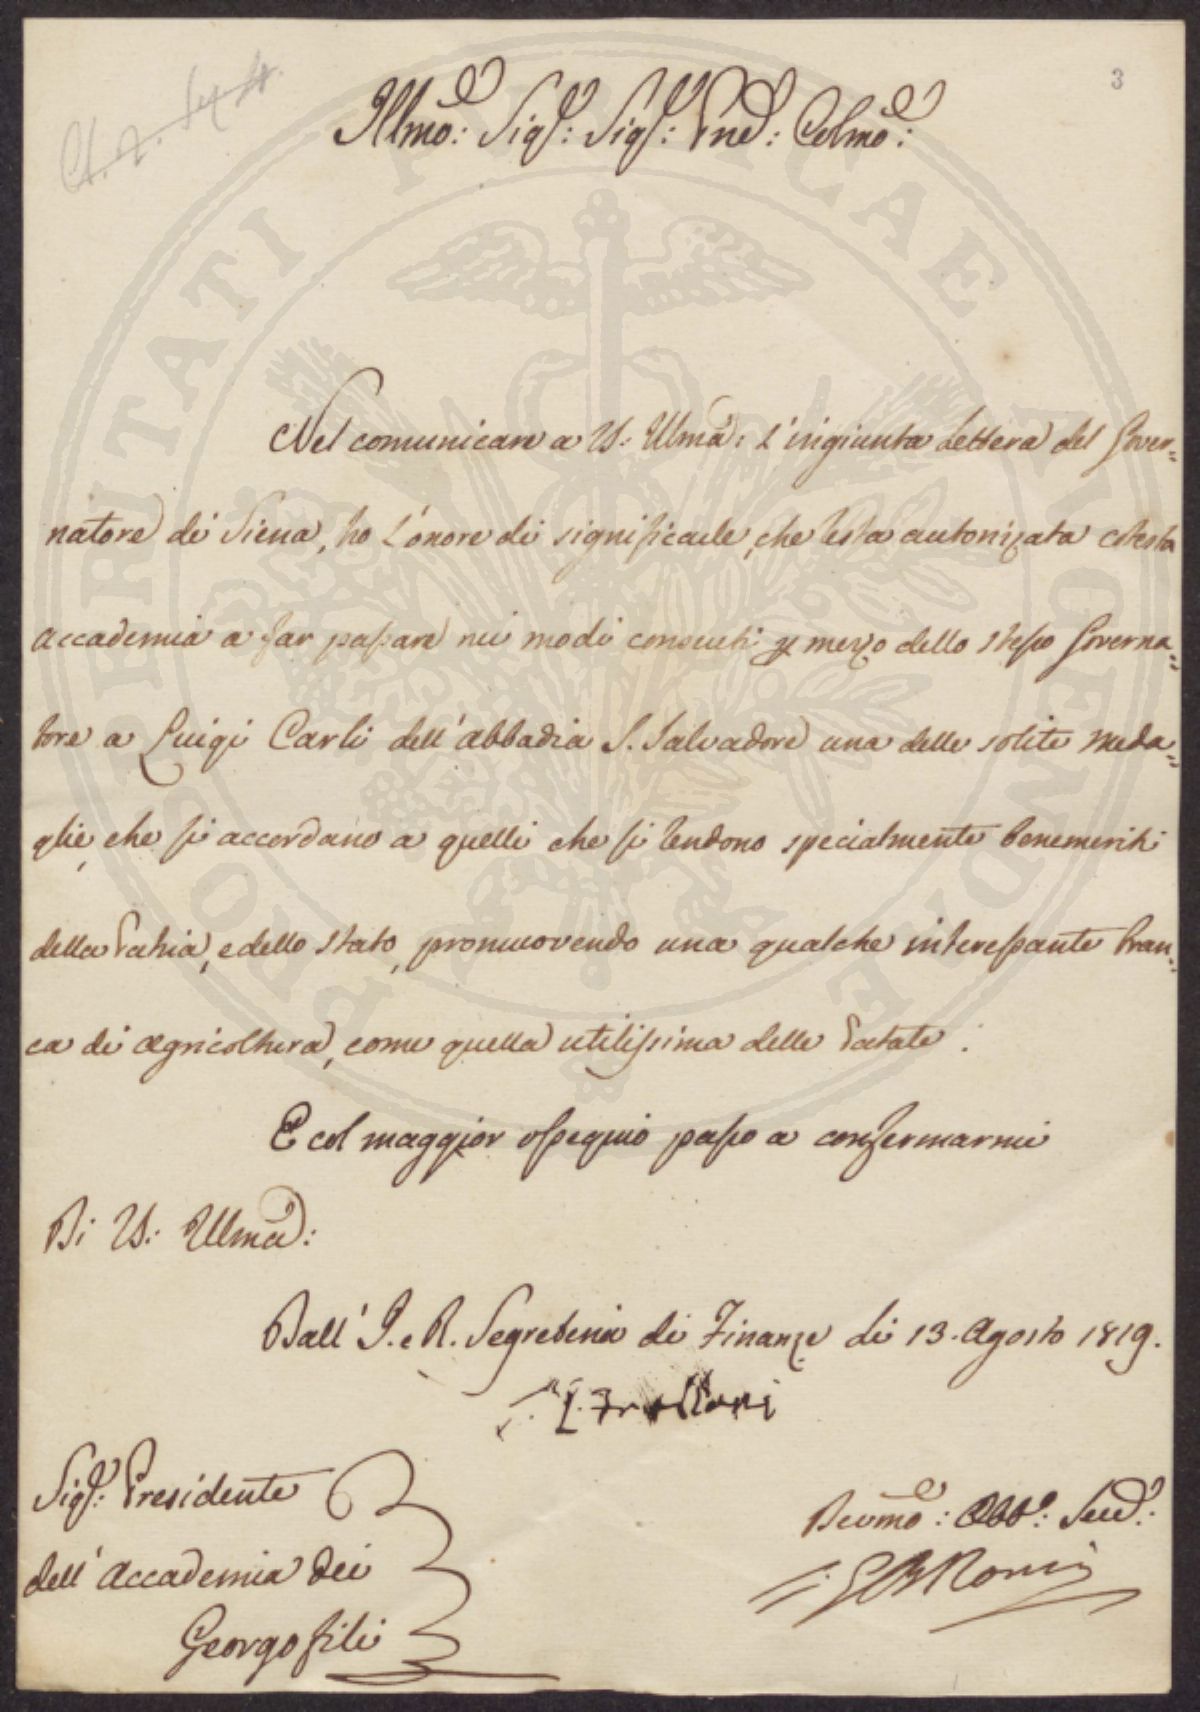 3
Illmo: Sigr: Sigr: Pne: Colmo:
Nel comunicare a VS: Illma: l'ingiunta Lettera del Gover=
natore di Siena, ho l'onore di significarle, che resta autorizata cotesta
Accademia a far passare nei modi consueti per mezzo dello stesso Governa=
tore a Luigi Carli dell'Abbadia S. Salvadore una delle solite Meda=
glie, che si accordano a quelli che si rendono specialmente benemeriti
della Patria, e dello Stato, promuovendo una qualche interessante bran=
ca di Agricoltura, come quella utilissima delle Patate.
E col maggior ossequio passo a confermarmi
Di VS: Illma:
Dall' I. e R. Segreteria di Finanze li 13. Agosto 1819.
Sigr: Presidente
dell'Accademia dei
Georgofili
Devmo: Obbo: Serv:
PROSPERITATI PUBLICAE AUGENDAE